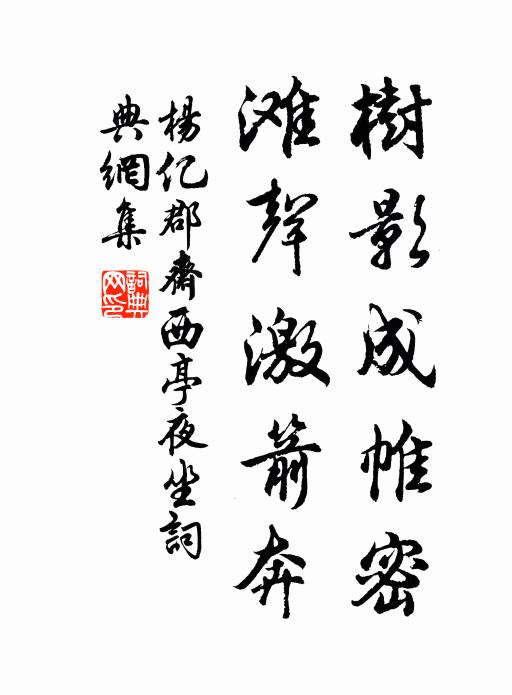 樹影成帷密
滩聲激箭奔
楊亿郡齋西亭夜坐詞
典網集
詞典
网印